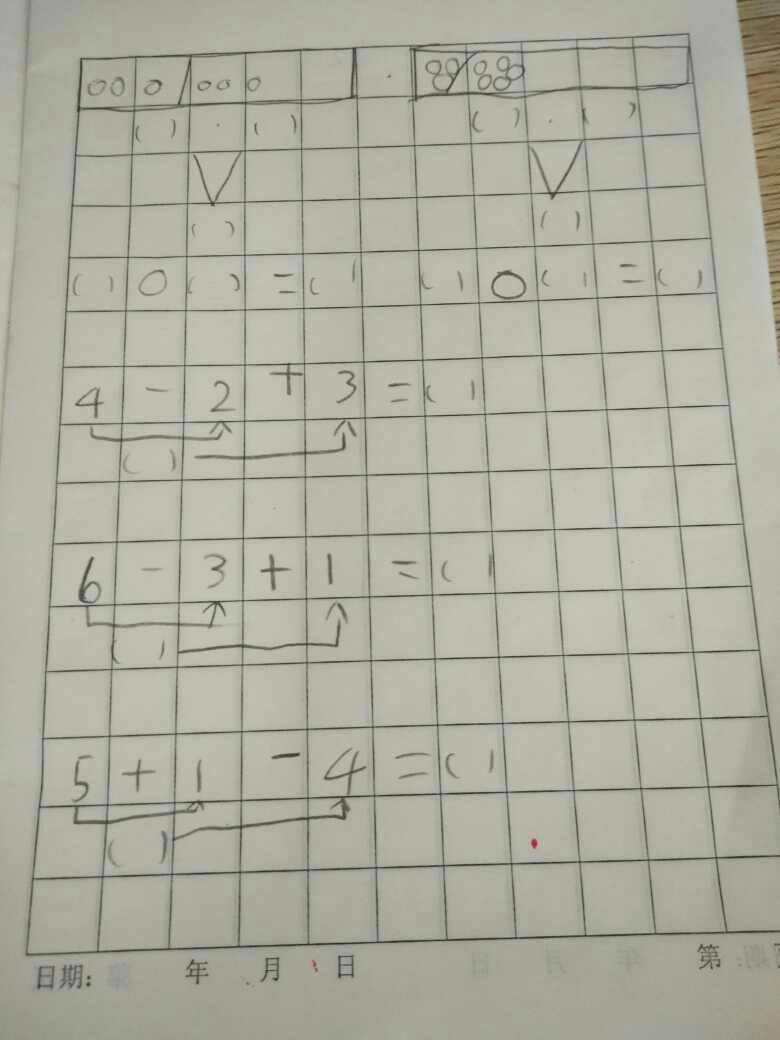 ( ) . ( ) ( ) . ( )
( ) ( )
( ) ○ ( ) = ( ) ( ) ○ ( ) = ( )
4 - 2 + 3 = ( )
( )
6 - 3 + 1 = ( )
( )
5 + 1 - 4 = ( )
( )
日期: 年 月 日 第